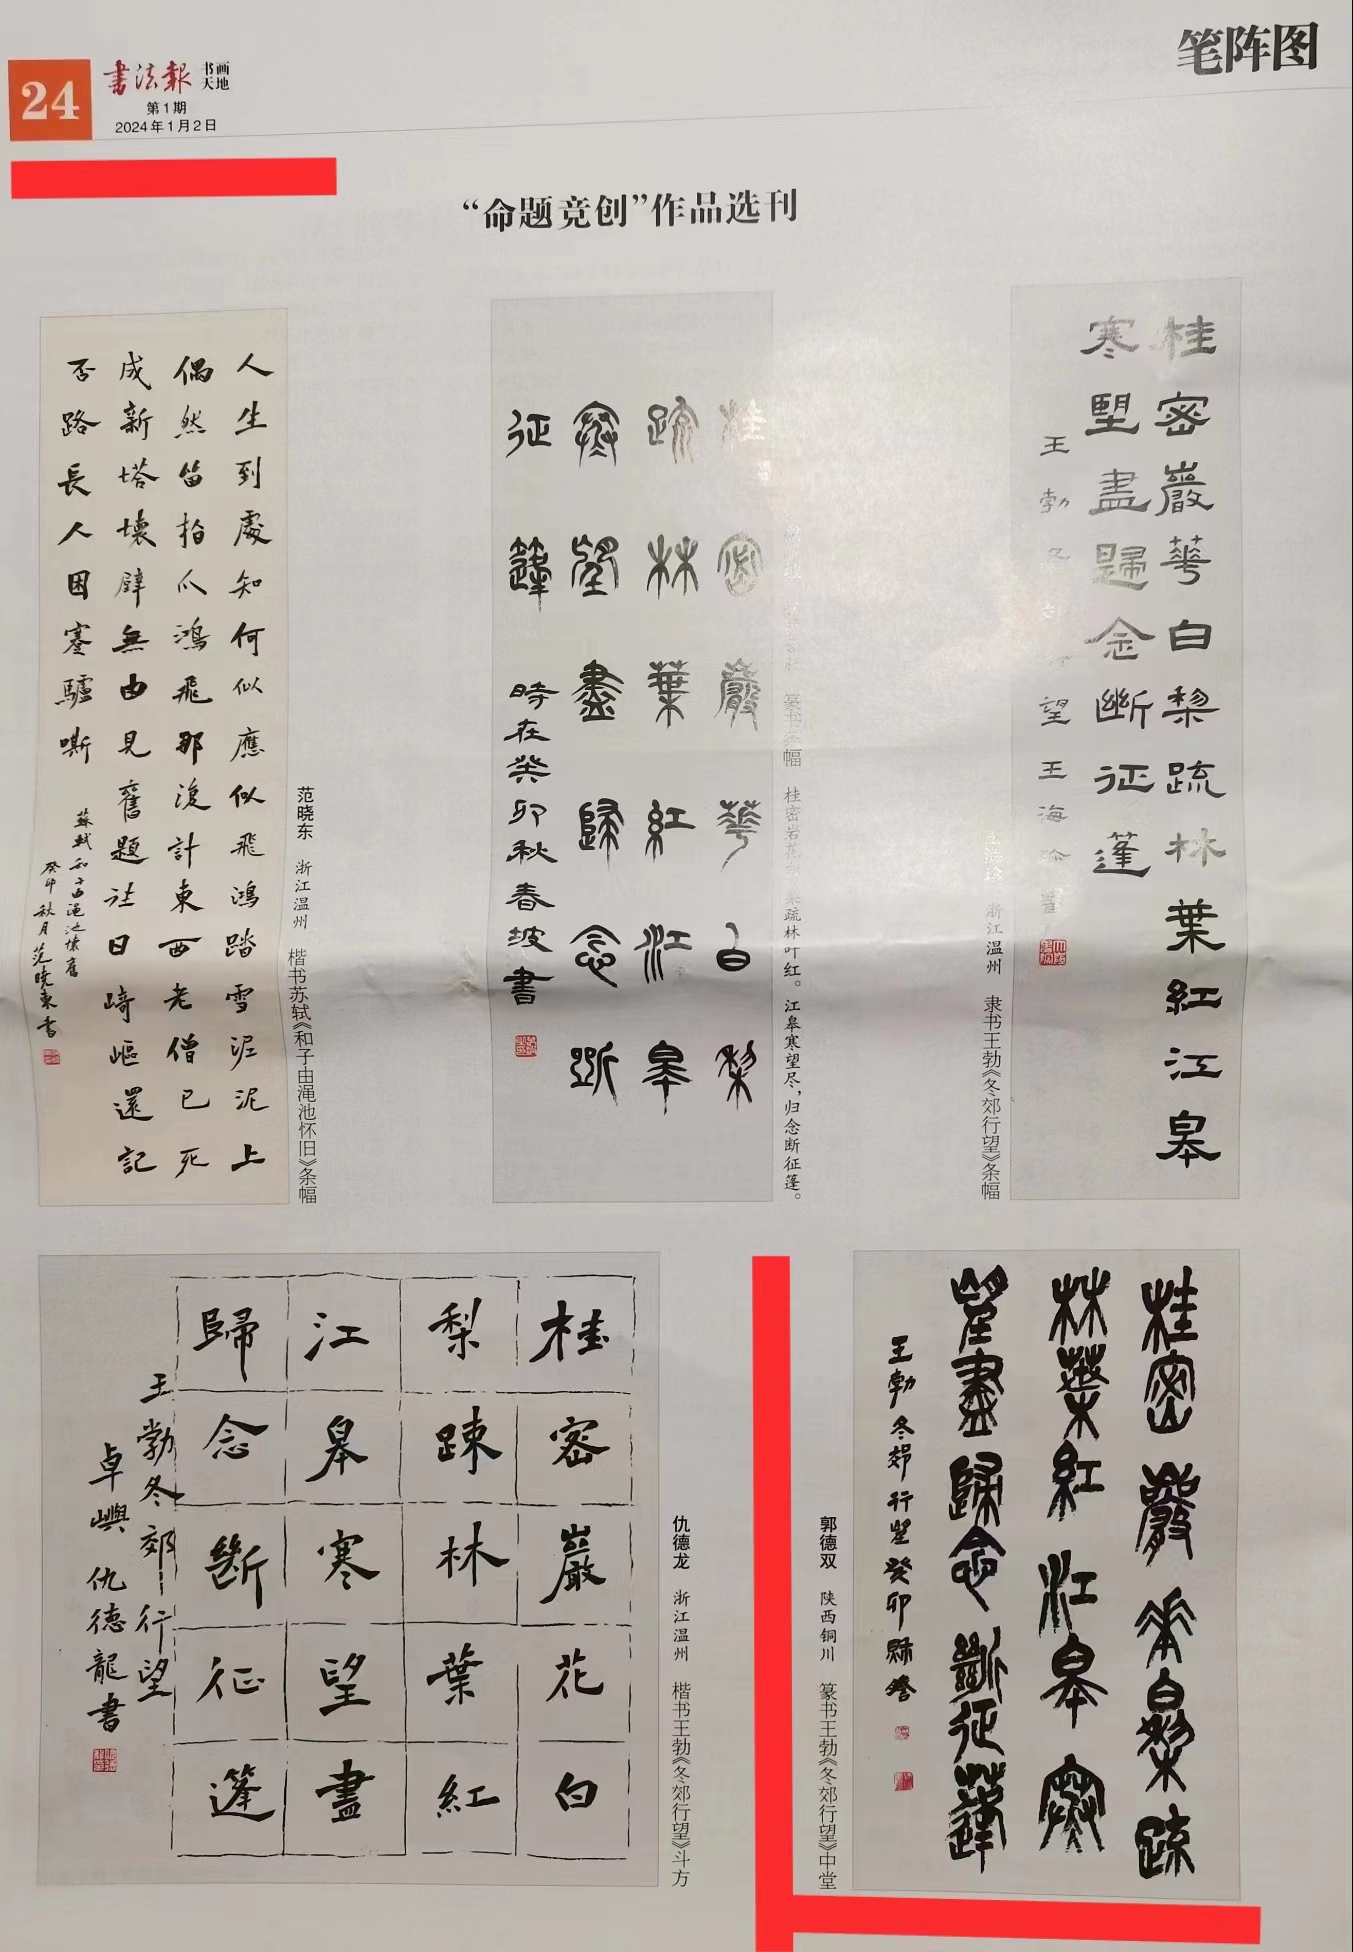 24
书法報 书画天地
第1期
2024年1月2日
笔阵图
“命题竞创”作品选刊
人生到處知何似應似飛鴻踏雪泥泥上
偶然留指爪鴻飛那復計東西老僧已死
成新塔壞壁無由見舊題往日崎嶇還記
否路長人困蹇驢嘶
蘇軾和子由澠池懷舊
癸卯秋月范曉東書
范晓东 浙江温州 楷书苏轼《和子由渑池怀旧》条幅
桂密巖華白梨
疏林葉紅江皋
寒望盡歸念斷
征篷
時在癸卯秋春坡書
篆书条幅 桂密岩花白,梨疏林叶红。江皋寒望尽,归念断征篷。
桂密巖華白梨疏林葉紅江皋
寒望盡歸念斷征篷
王勃冬郊行望王海珍書
王海珍 浙江温州 隶书王勃《冬郊行望》条幅
桂密巖花白
梨疎林葉紅
江皋寒望盡
歸念斷征篷
王勃冬郊行望
卓嶼 仇德龍書
仇德龙 浙江温州 楷书王勃《冬郊行望》斗方
桂密巖華白梨疏
林葉紅江皋寒
望盡歸念斷征蓬
王勃冬郊行望癸卯
郭德双 陕西铜川 篆书王勃《冬郊行望》中堂